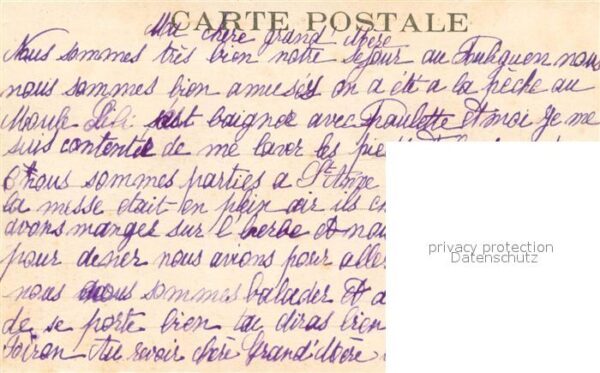 CARTE POSTALE
Ma chère grand'Mère
Nous sommes très bien notre séjour au Pouliguen nous
nous sommes bien amusés on a été a la pêche au
Moule s'est baignée avec Paulette et moi je me
suis contenté de me laver les
nous sommes parties a St Anne
la messe était en plein air ils
avons manger sur l'herbe et
pour dener nous avions pour
nous nous sommes balader et
de se porte bien tu diras bien
Au revoir chère Grand'Mère
privacy protection
Datenschutz